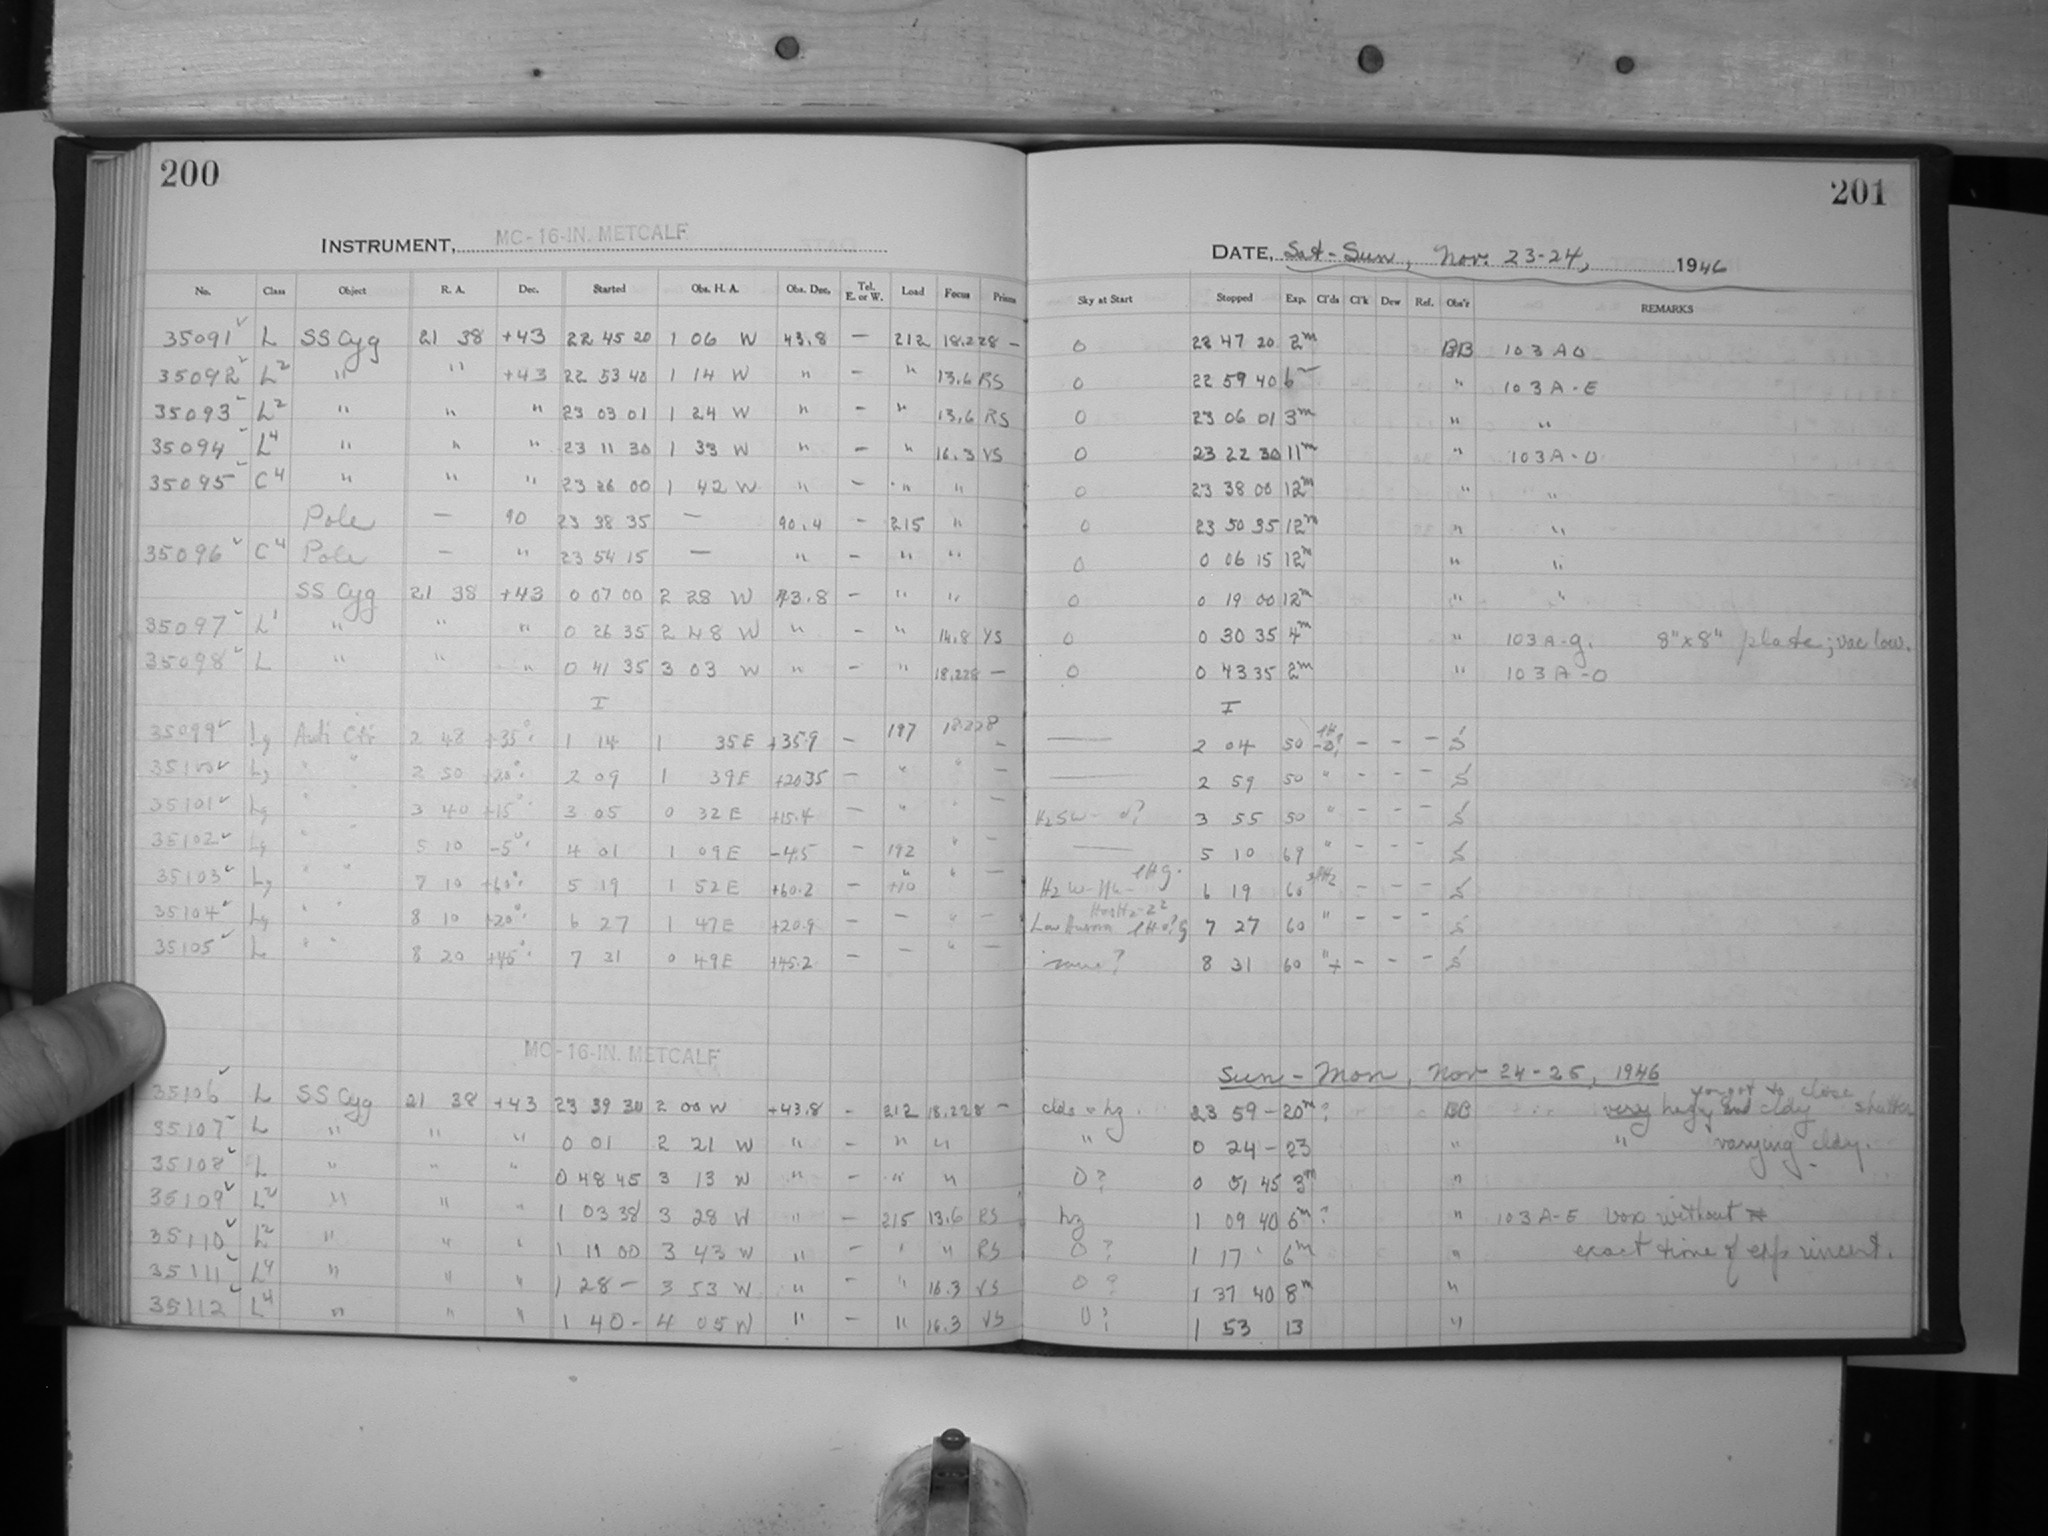 200
INSTRUMENT, MC-16-IN. METCALF
No. Class Object R. A. Dec. Started Obs. H. A. Obs. Dec. Tel. E. or W. Load Focus Prisms
35091 L SS Cyg 21 38 +43 22 45 20 1 06 W 43.8 — 212 18.228 —
35092 L2 " " +43 22 53 40 1 14 W " — " 13.6 RS
35093 L2 " " " 23 03 01 1 24 W " — " 13.6 RS
35094 L4 " " " 23 11 30 1 33 W " — " 16.3 VS
35095 C4 " " " 23 26 00 1 42 W " — " "
Pole — 90 23 38 35 — 90.4 — 215 "
35096 C4 Pole — " 23 54 15 — " — " "
SS Cyg 21 38 +43 0 07 00 2 28 W 43.8 — " "
35097 L1 " " " 0 26 35 2 48 W " — " 14.8 YS
35098 L " " " 0 41 35 3 03 W " — " 18.228 —
I
35099 Lg Anti Ctr 2 48 +35° 1 14 1 35 E +35.9 — 197 18.228 —
35100 Lg " " 2 50 +20° 2 09 1 39 E +20.35 — " " —
35101 Lg " " 3 40 +15° 3 05 0 32 E +15.4 — " " —
35102 Lg " " 5 10 -5° 4 01 1 09 E -4.5 — 192 " —
35103 Lg " " 7 10 +60° 5 19 1 52 E +60.2 — " " —
35104 Lg " " 8 10 +20° 6 27 1 47 E +20.9 — — " —
35105 L " " 8 20 +45° 7 31 0 49 E +45.2 — — " —
MC-16-IN. METCALF
35106 L SS Cyg 21 38 +43 23 39 30 2 00 W +43.8 — 212 18.228 —
35107 L " " " 0 01 2 21 W " — " "
35108 L " " " 0 48 45 3 13 W " — " "
35109 L2 " " " 1 03 38 3 28 W " — 215 13.6 RS
35110 L2 " " " 1 11 00 3 43 W " — " " RS
35111 L4 " " " 1 28 — 3 53 W " — " 16.3 VS
35112 L4 " " " 1 40 — 4 05 W " — " 16.3 VS
201
DATE, Sat - Sun, Nov. 23-24, 1946
Sky at Start Stopped Exp. Cl'ds Cl'k Dew Ref. Obs'r REMARKS
0 22 47 20 2m BB 103 A O
0 22 59 40 6m " 103 A-E
0 23 06 01 3m " "
0 23 22 30 11m " 103 A-O
0 23 38 00 12m " "
0 23 50 35 12m " "
0 0 06 15 12m " "
0 0 19 00 12m " "
0 0 30 35 4m " 103 A-g. 8"x8" plate; vac low.
0 0 43 35 2m " 103 A-O
I
— 2 04 50 — — — S
— 2 59 50 " — — — S
3 55 50 " — — — S
— 5 10 69 " — — — S
6 19 60 — — — S
Low Aurora 7 27 60 " — — — S
same? 8 31 60 — — — S
Sun - Mon, Nov 24-25, 1946
clds & hz. 23 59 — 20m? BB very hazy and cldy forgot to close shutter
" 0 24 — 23 " " varying cldy.
0? 0 51 45 3m "
hz 1 09 40 6m? " 103 A-E box without
0? 1 17 6m " exact time of exp uncert.
0? 1 37 40 8m "
0? 1 53 13 "